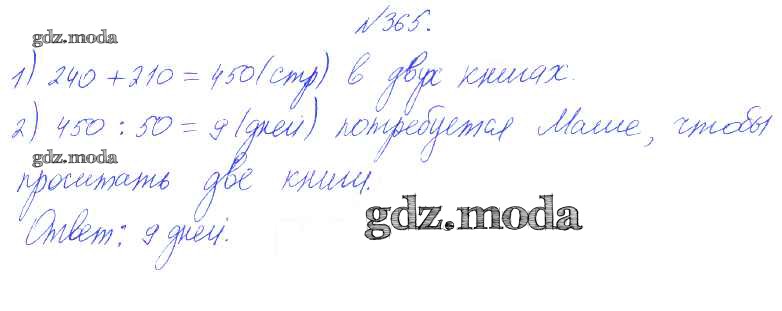 №365.
gdz.moda
1) 240+210=450(стр) в двух книгах.
2) 450:50=9(дней) потребуется Маше, чтобы
gdz.moda
просчитать две книги.
gdz.moda
Ответ: 9 дней.